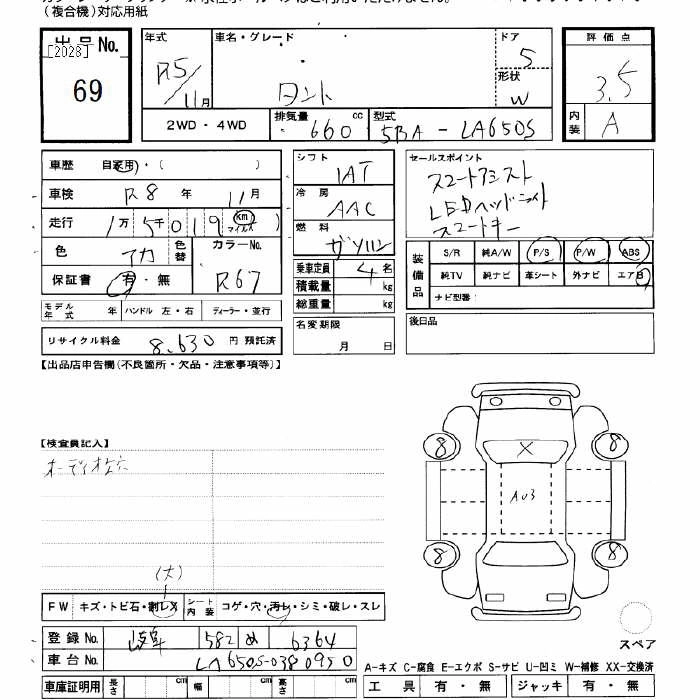 (複合機)対応用紙
出品No.
[2028]
69
年式 R5/11月
車名・グレード タント
ドア 5
形状 W
評価点 3.5
内装 A
2WD・4WD
排気量 660 cc
型式 5BA - LA650S
車歴 自家用・( )
車検 R8 年 11 月
走行 1万 5千 0 1 9 km マイル
色 アカ 色替 カラーNo. R67
保証書 有・無
モデル年式 年 ハンドル 左・右 ディーラー・並行
リサイクル料金 8,630 円 預託済
シフト IAT
冷房 AAC
燃料 ガソリン
乗車定員 4 名
積載量 kg
総重量 kg
名変期限 月 日
セールスポイント
スマートアシスト
LEDヘッドライト
スマートキー
装備品 S/R 純A/W P/S P/W ABS
純TV 純ナビ 革シート 外ナビ エアB
ナビ型番:
後日品
【出品店申告欄(不良箇所・欠品・注意事項等)】
【検査員記入】
オーディオ穴
(大)
FW キズ・トビ石・割レX シート内装 コゲ・穴・汚レ・シミ・破レ・スレ
登録No. 岐阜 582 め 6364
車台No. LA650S-0380950
車庫証明用 長さ cm 幅 cm 高さ cm
X
AU3
8 8
8 8
スペア
A-キズ C-腐食 E-エクボ S-サビ U-凹ミ W-補修 XX-交換済
工具 有・無 ジャッキ 有・無